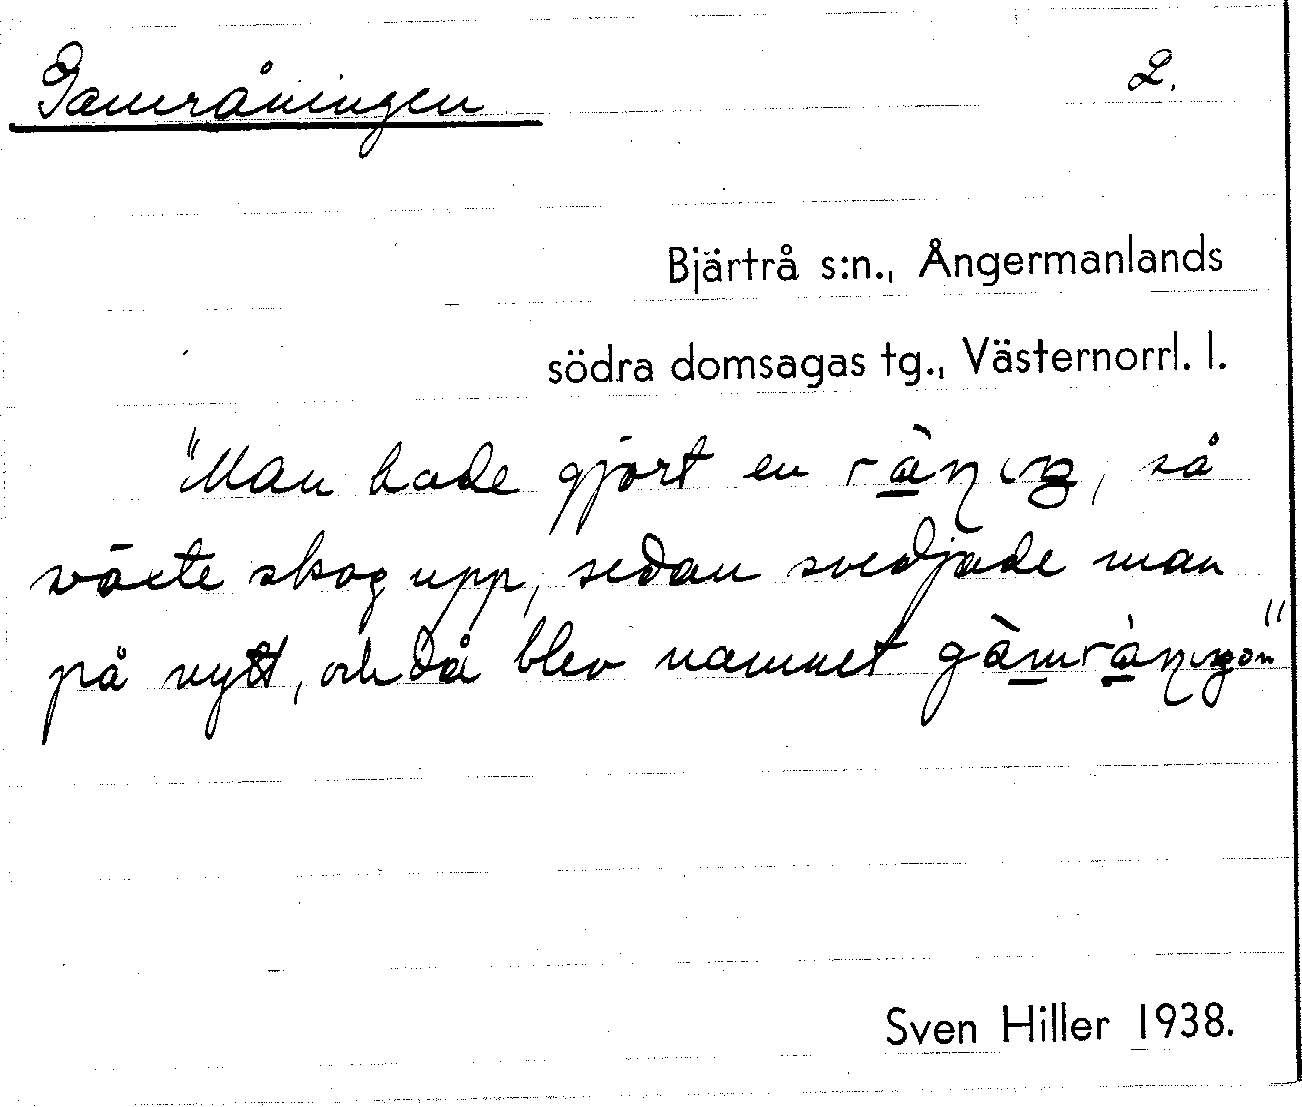 Gamråningen 2.
Bjärtrå s:n., Ångermanlands
södra domsagas tg., Västernorrl. l.
"Man hade gjort en rå̀ṇiŋ, så
växte skog upp, sedan svedjade man
på nytt, och då blev namnet gàmrà̱ṇiŋən"
Sven Hiller 1938.